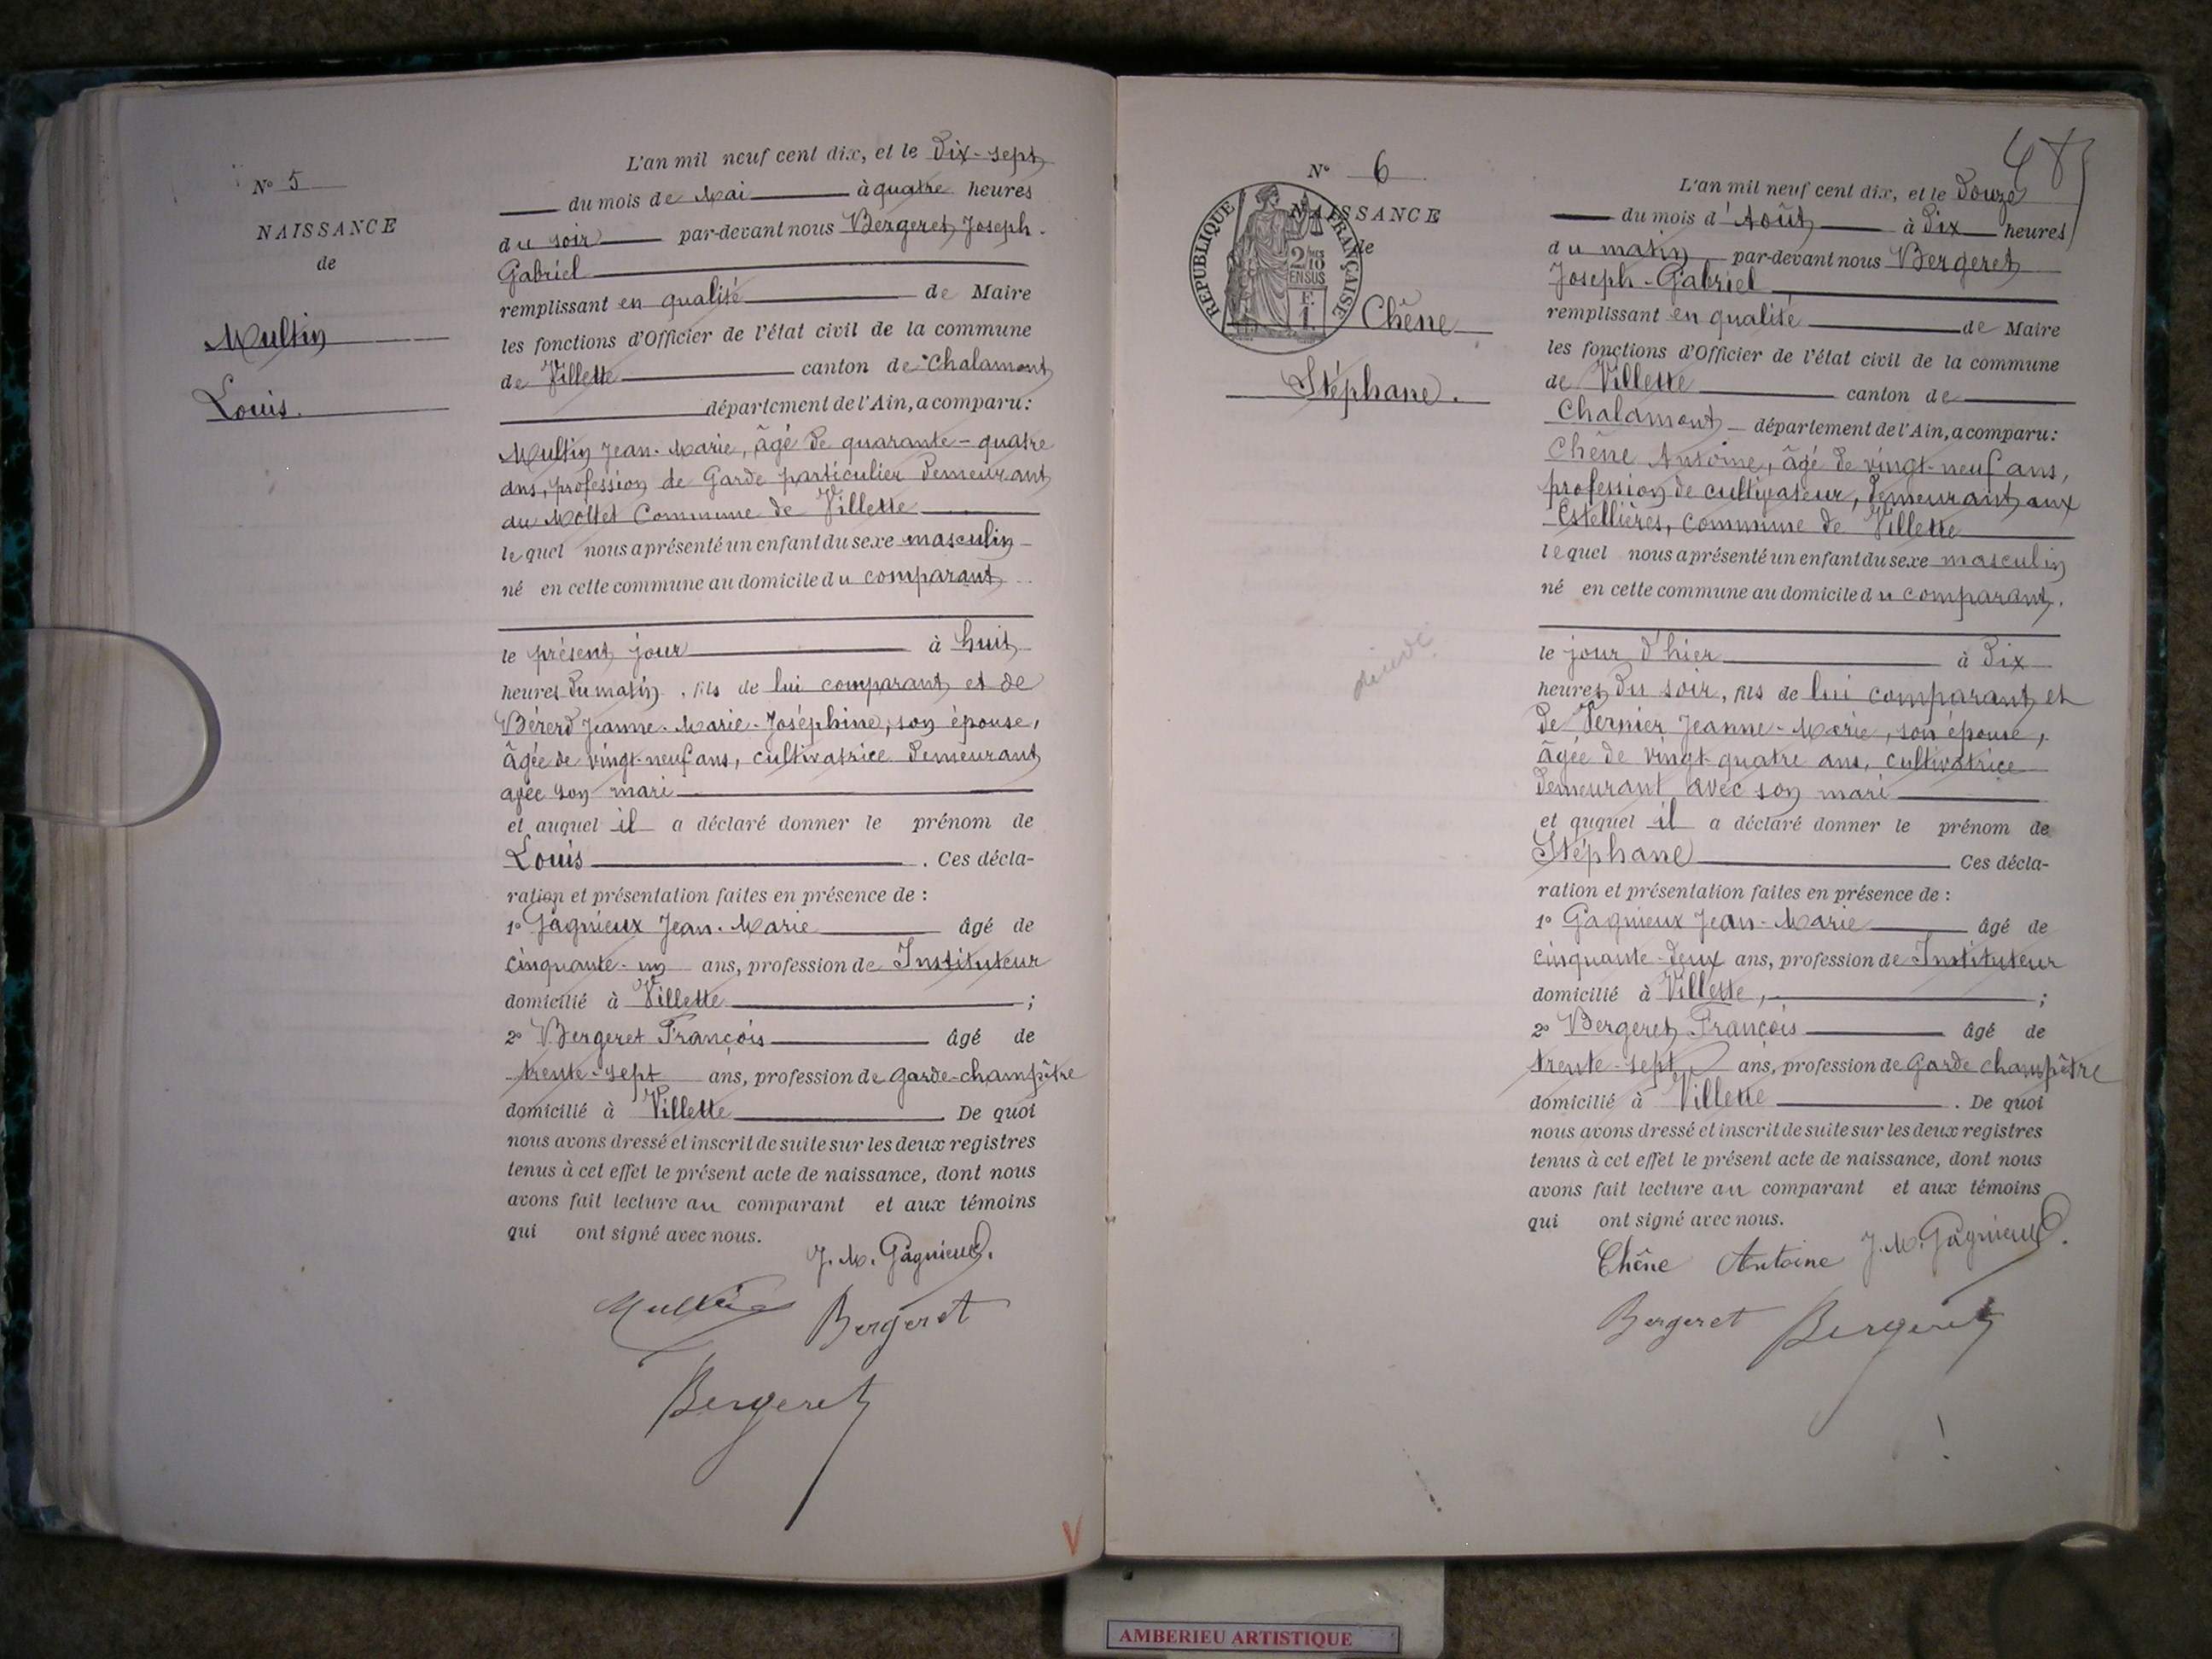 N° 5
NAISSANCE
de
Multin
Louis.
L'an mil neuf cent dix, et le Dix-sept
du mois de Mai à quatre heures
du soir par-devant nous Bergeret Joseph-
Gabriel
remplissant en qualité de Maire
les fonctions d'Officier de l'état civil de la commune
de Villette canton de Chalamont
département de l'Ain, a comparu:
Multin Jean-Marie, âgé de quarante-quatre
ans, profession de Garde particulier demeurant
au Mollet Commune de Villette
lequel nous a présenté un enfant du sexe masculin
né en cette commune au domicile du comparant
le présent jour à huit
heures du matin, fils de lui comparant et de
Bérerd Jeanne-Marie-Joséphine, son épouse,
âgée de vingt-neuf ans, cultivatrice demeurant
avec son mari
et auquel il a déclaré donner le prénom de
Louis. Ces décla-
ration et présentation faites en présence de :
1° Gagnieux Jean-Marie âgé de
cinquante-un ans, profession de Instituteur
domicilié à Villette ;
2° Bergeret François âgé de
trente-sept ans, profession de Garde-champêtre
domicilié à Villette. De quoi
nous avons dressé et inscrit de suite sur les deux registres
tenus à cet effet le présent acte de naissance, dont nous
avons fait lecture au comparant et aux témoins
qui ont signé avec nous.
J. M. Gagnieux.
Multin Bergeret
Bergeret
V
48
N° 6
NAISSANCE
de
REPUBLIQUE FRANÇAISE
2/10
EN SUS
Chêne
Stéphane.
L'an mil neuf cent dix, et le Douze
du mois d'Août à Dix heures
du matin par-devant nous Bergeret
Joseph-Gabriel
remplissant en qualité de Maire
les fonctions d'Officier de l'état civil de la commune
de Villette canton de
Chalamont département de l'Ain, a comparu:
Chêne Antoine, âgé de vingt-neuf ans,
profession de cultivateur, demeurant aux
Estellières, commune de Villette
lequel nous a présenté un enfant du sexe masculin
né en cette commune au domicile du comparant.
le jour d'hier à Dix
heures du soir, fils de lui comparant et
de Pernier Jeanne-Marie, son épouse,
âgée de vingt-quatre ans, cultivatrice
demeurant avec son mari
et auquel il a déclaré donner le prénom de
Stéphane Ces décla-
ration et présentation faites en présence de :
1° Gagnieux Jean-Marie âgé de
cinquante-deux ans, profession de Instituteur
domicilié à Villette, ;
2° Bergeret François âgé de
trente-sept ans, profession de Garde champêtre
domicilié à Villette. De quoi
nous avons dressé et inscrit de suite sur les deux registres
tenus à cet effet le présent acte de naissance, dont nous
avons fait lecture au comparant et aux témoins
qui ont signé avec nous.
Chêne Antoine J. M. Gagnieux.
Bergeret Bergeret
AMBERIEU ARTISTIQUE